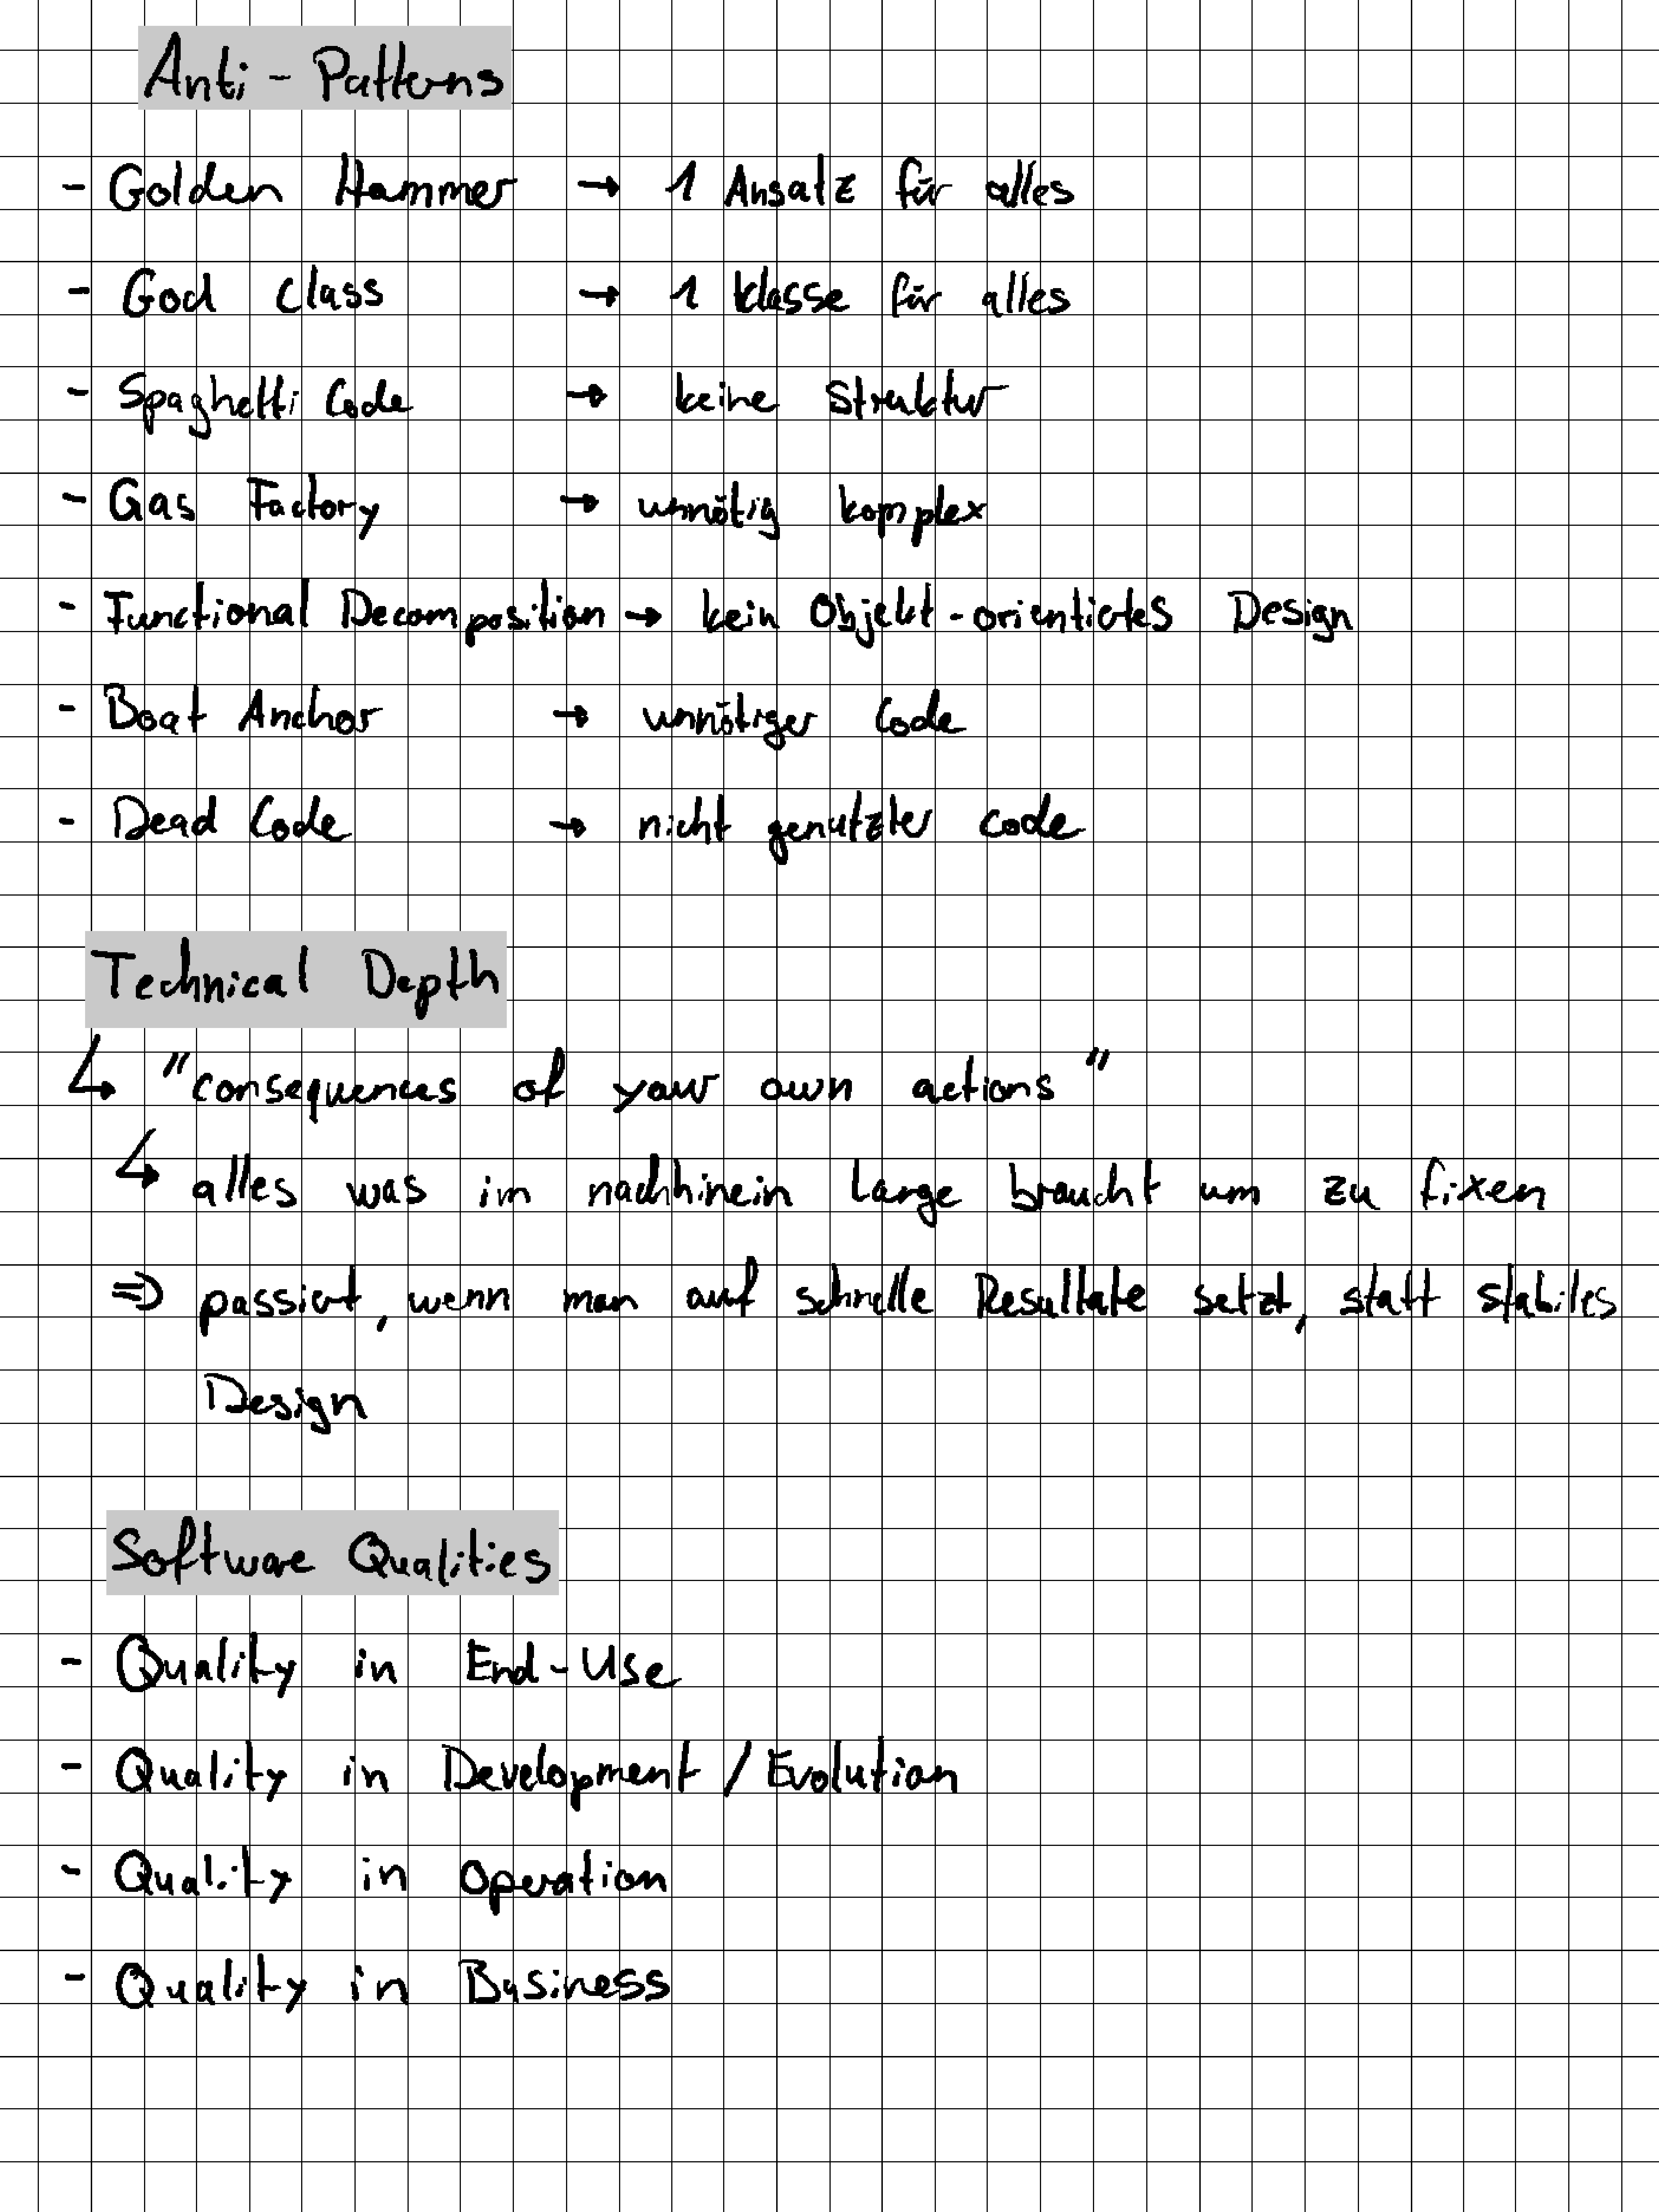 Anti-Patterns
- Golden Hammer → 1 Ansatz für alles
- God Class → 1 Klasse für alles
- Spaghetti Code → keine Struktur
- Gas Factory → unnötig komplex
- Functional Decomposition → kein Objekt-orientiertes Design
- Boat Anchor → unnötiger Code
- Dead Code → nicht genutzter Code
Technical Depth
↳ "consequences of your own actions"
↳ alles was im nachhinein lange braucht um zu fixen
⇒ passiert, wenn man auf schnelle Resultate setzt, statt stabiles
Design
Software Qualities
- Quality in End-Use
- Quality in Development / Evolution
- Quality in Operation
- Quality in Business